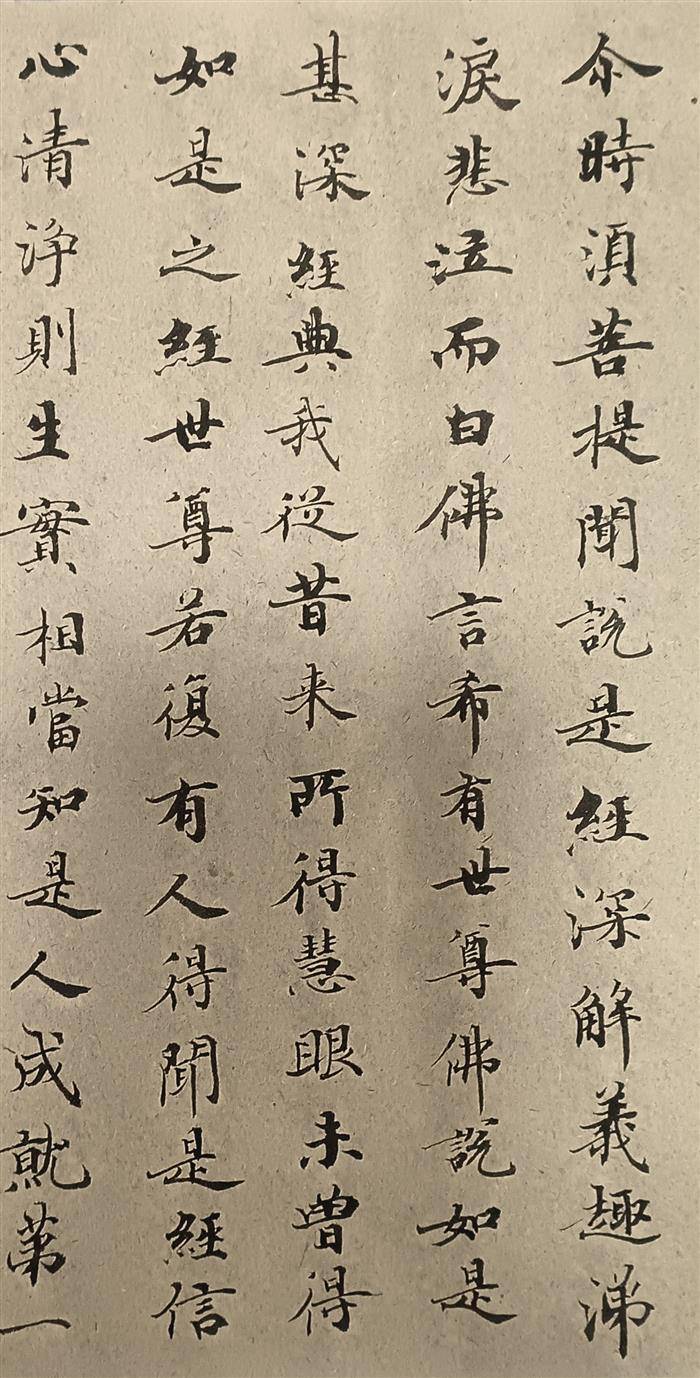 尒時須菩提聞說是經深解義趣涕
淚悲泣而白佛言希有世尊佛說如是
甚深經典我從昔来所得慧眼未曾得
如是之經世尊若復有人得聞是經信
心清淨則生實相當知是人成就第一